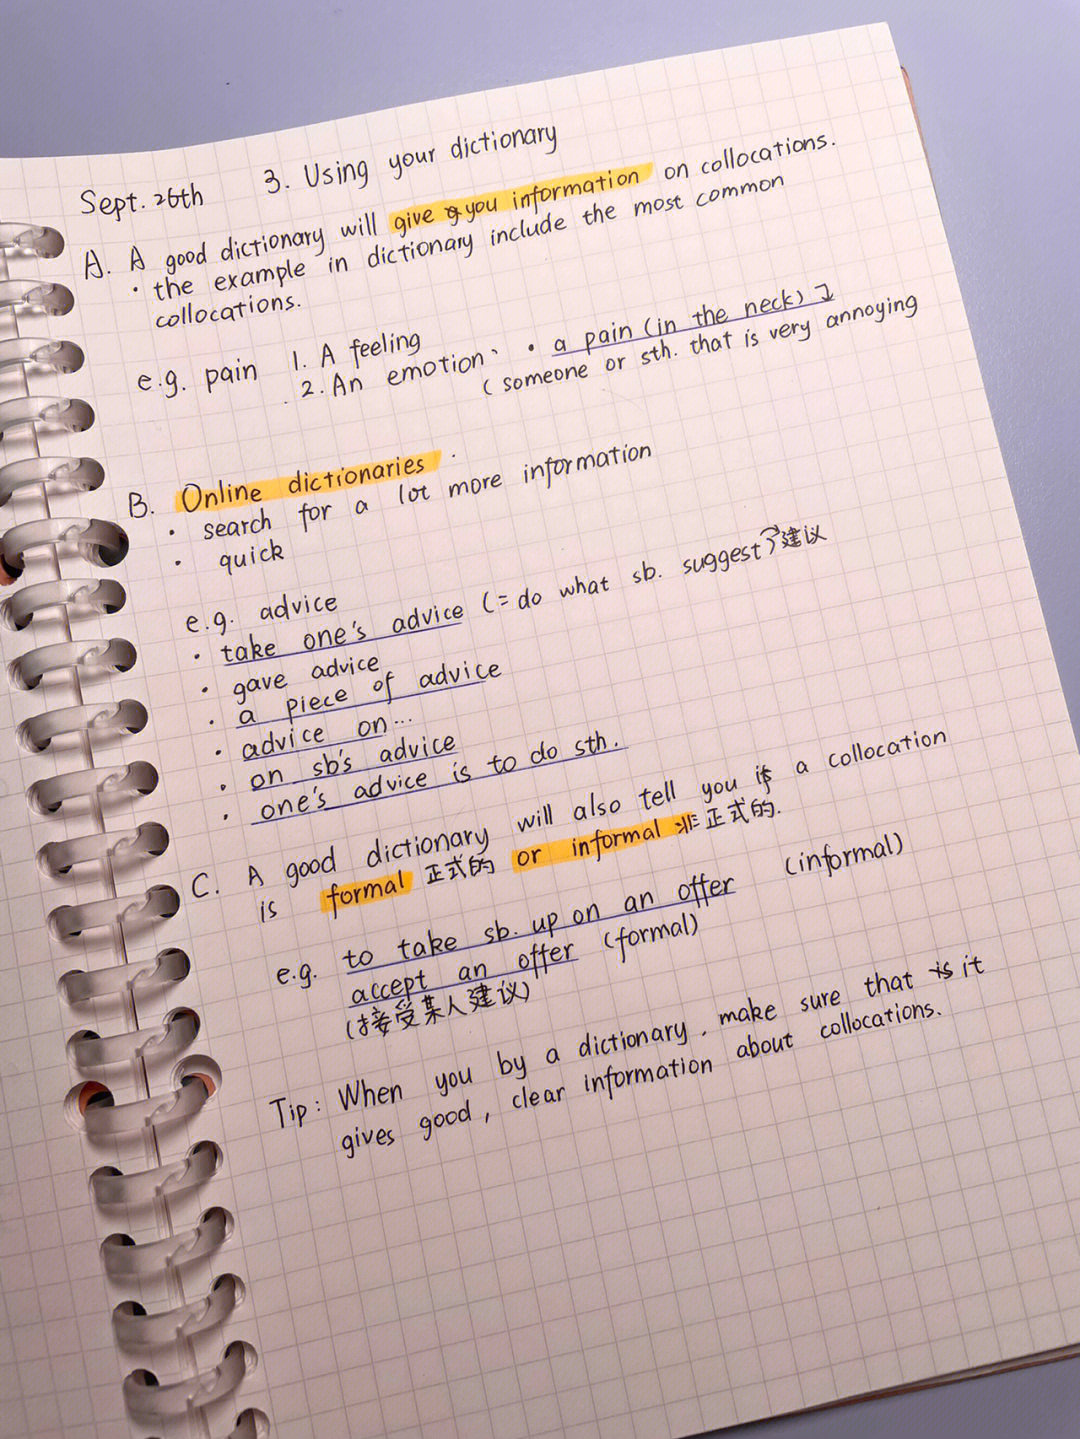 Sept. 26th 3. Using your dictionary
A. A good dictionary will give you information on collocations.
· the example in dictionary include the most common
collocations.
e.g. pain 1. A feeling
2. An emotion、 · a pain (in the neck)
(someone or sth. that is very annoying
B. Online dictionaries.
· search for a lot more information
· quick
e.g. advice
· take one's advice (= do what sb. suggest) 建议
· gave advice
· a piece of advice
· advice on...
· on sb's advice
· one's advice is to do sth.
C. A good dictionary will also tell you if a collocation
is formal 正式的 or informal 非正式的.
e.g. to take sb. up on an offer (informal)
accept an offer (formal)
(接受某人建议)
Tip: When you by a dictionary, make sure that is it
gives good, clear information about collocations.